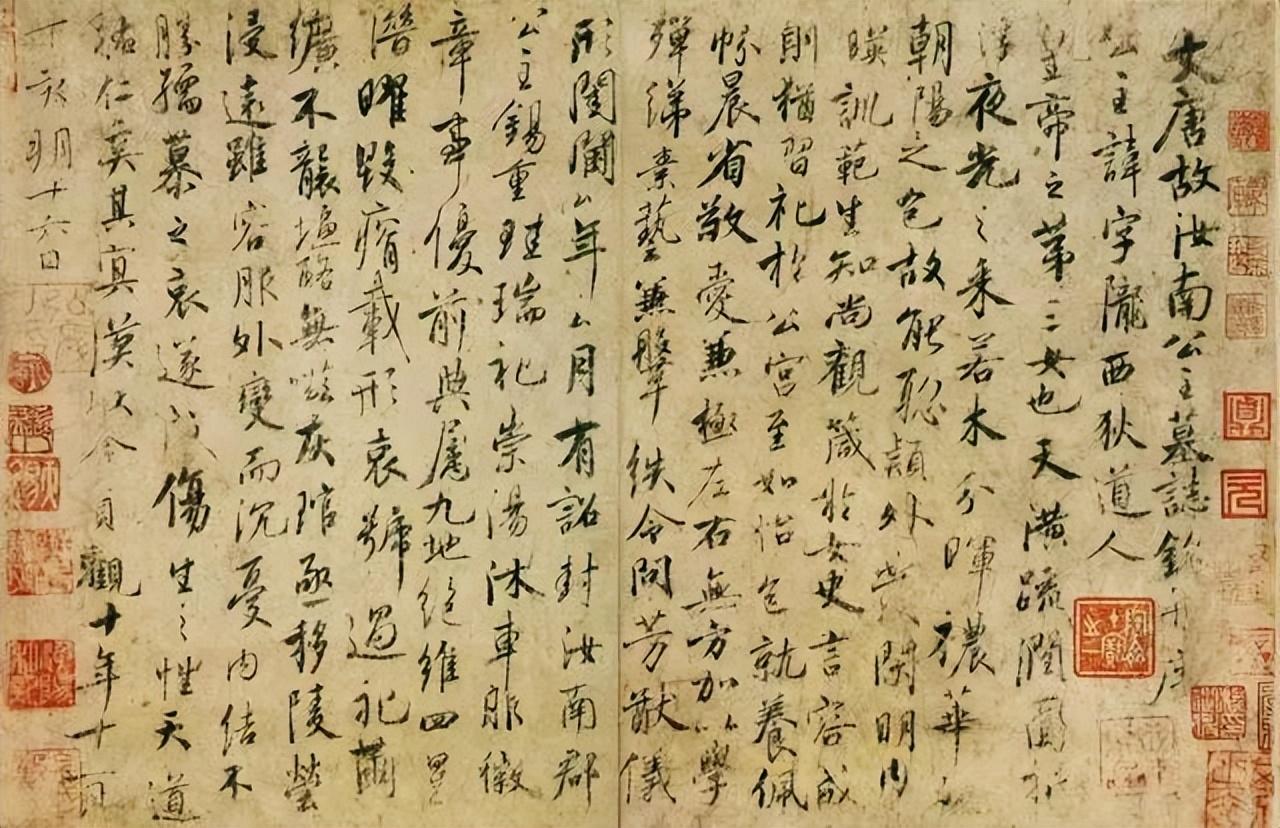 大唐故汝南公主墓誌銘并序
公主諱字隴西狄道人
皇帝之第三女也天潢疏潤圓折
浮夜光之采若木分暉穠華
朝陽之色故能聰穎外閑明內
暎訓範生知尚觀箴於女史言容成
則猶習礼於公宮至如怡色就養佩
帉晨省敬愛兼極左右無方加以學
殫綈素藝兼鞶紩令問芳猷儀
形閨閫公年厶月有詔封汝南郡
公主錫重珪瑞礼崇湯沐車服徽
章事優前典屬九地絕維四星
潛曜毀瘠載形哀號過礼繭
纊不襲塩酪無嗞灰琯亟移陵塋
浸遠雖容服外變而沉憂內結不
勝孺慕之哀遂成傷生之性天道
祐仁奚其冥漠以今貞觀十年十一月
丁亥朔十六日